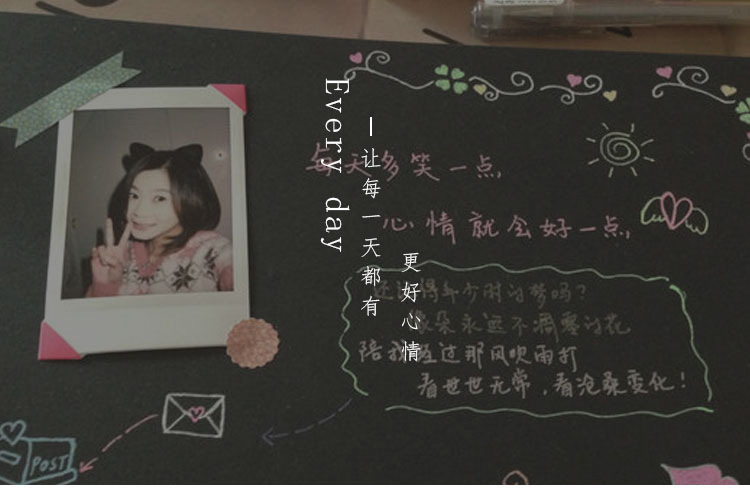 Every day
让每一天都有
更好心情
每天多笑一点,
心情就会好一点,
还记得年少时的梦吗?
朵永远不凋零的花
陪我经过那风吹雨打
看世世无常,看沧桑变化!
POST